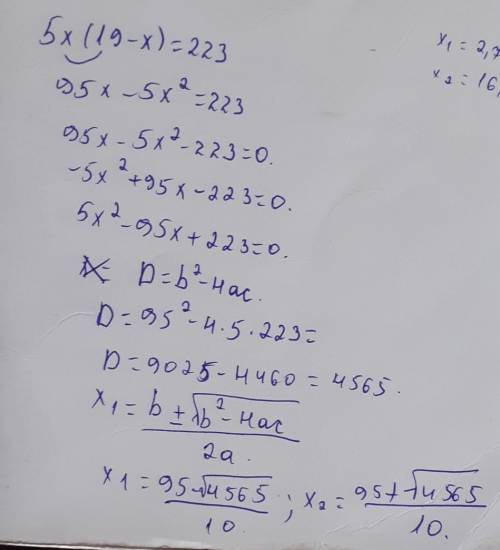 5x(19-x)=223
95x-5x²=223
95x-5x²-223=0.
-5x²+95x-223=0.
5x²-95x+223=0.
D=b²-4ac.
D=95²-4·5·223=
D=9025-4460=4565.
x₁=b±√b²-4ac/2a.
x₁=95-√4565/10; x₂=95+√4565/10.
x₁=2,
x₂=16,